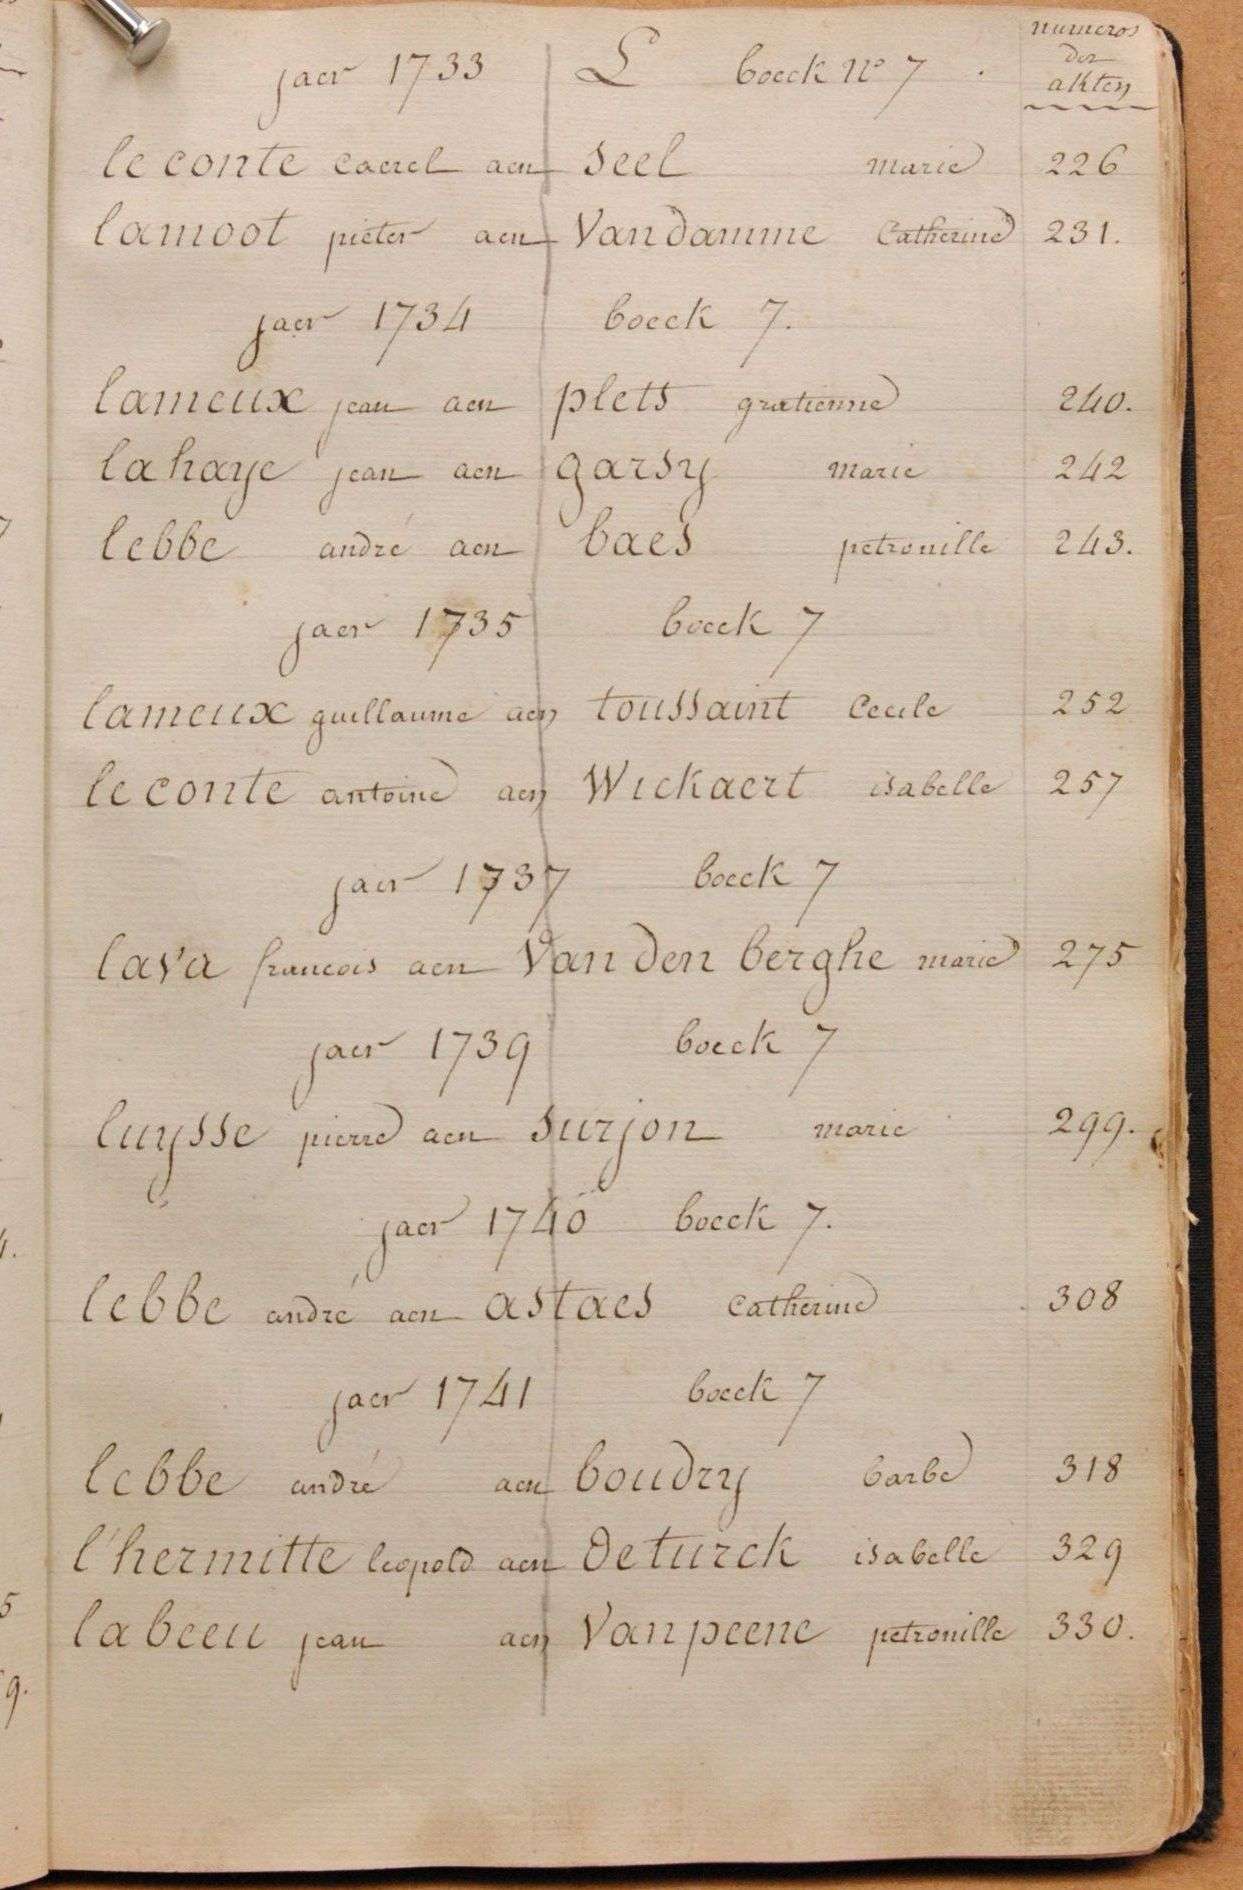 jaer 1733 L boeck n° 7 .
numeros
der
akten
le conte caerel aen seel marie 226
lamoot pieter aen Vandamme Catherine 231.
jaer 1734 boeck 7.
lameux jean aen plets gratienne 240.
lahaye jean aen garsy marie 242
lebbe andré aen baes petronille 243.
jaer 1735 boeck 7
lameux guillaume aen toussaint Cecile 252
le conte antoine aen Wickaert isabelle 257
jaer 1737 boeck 7
lava francois aen Van den berghe marie 275
jaer 1739 boeck 7
luysse pierre aen surjon marie 299.
jaer 1740 boeck 7.
lebbe andré aen astaes catherine 308
jaer 1741 boeck 7
lebbe andré aen boudry barbe 318
l'hermitte leopold aen Deturck isabelle 329
labeeu jean aen Vanpeene petronille 330.